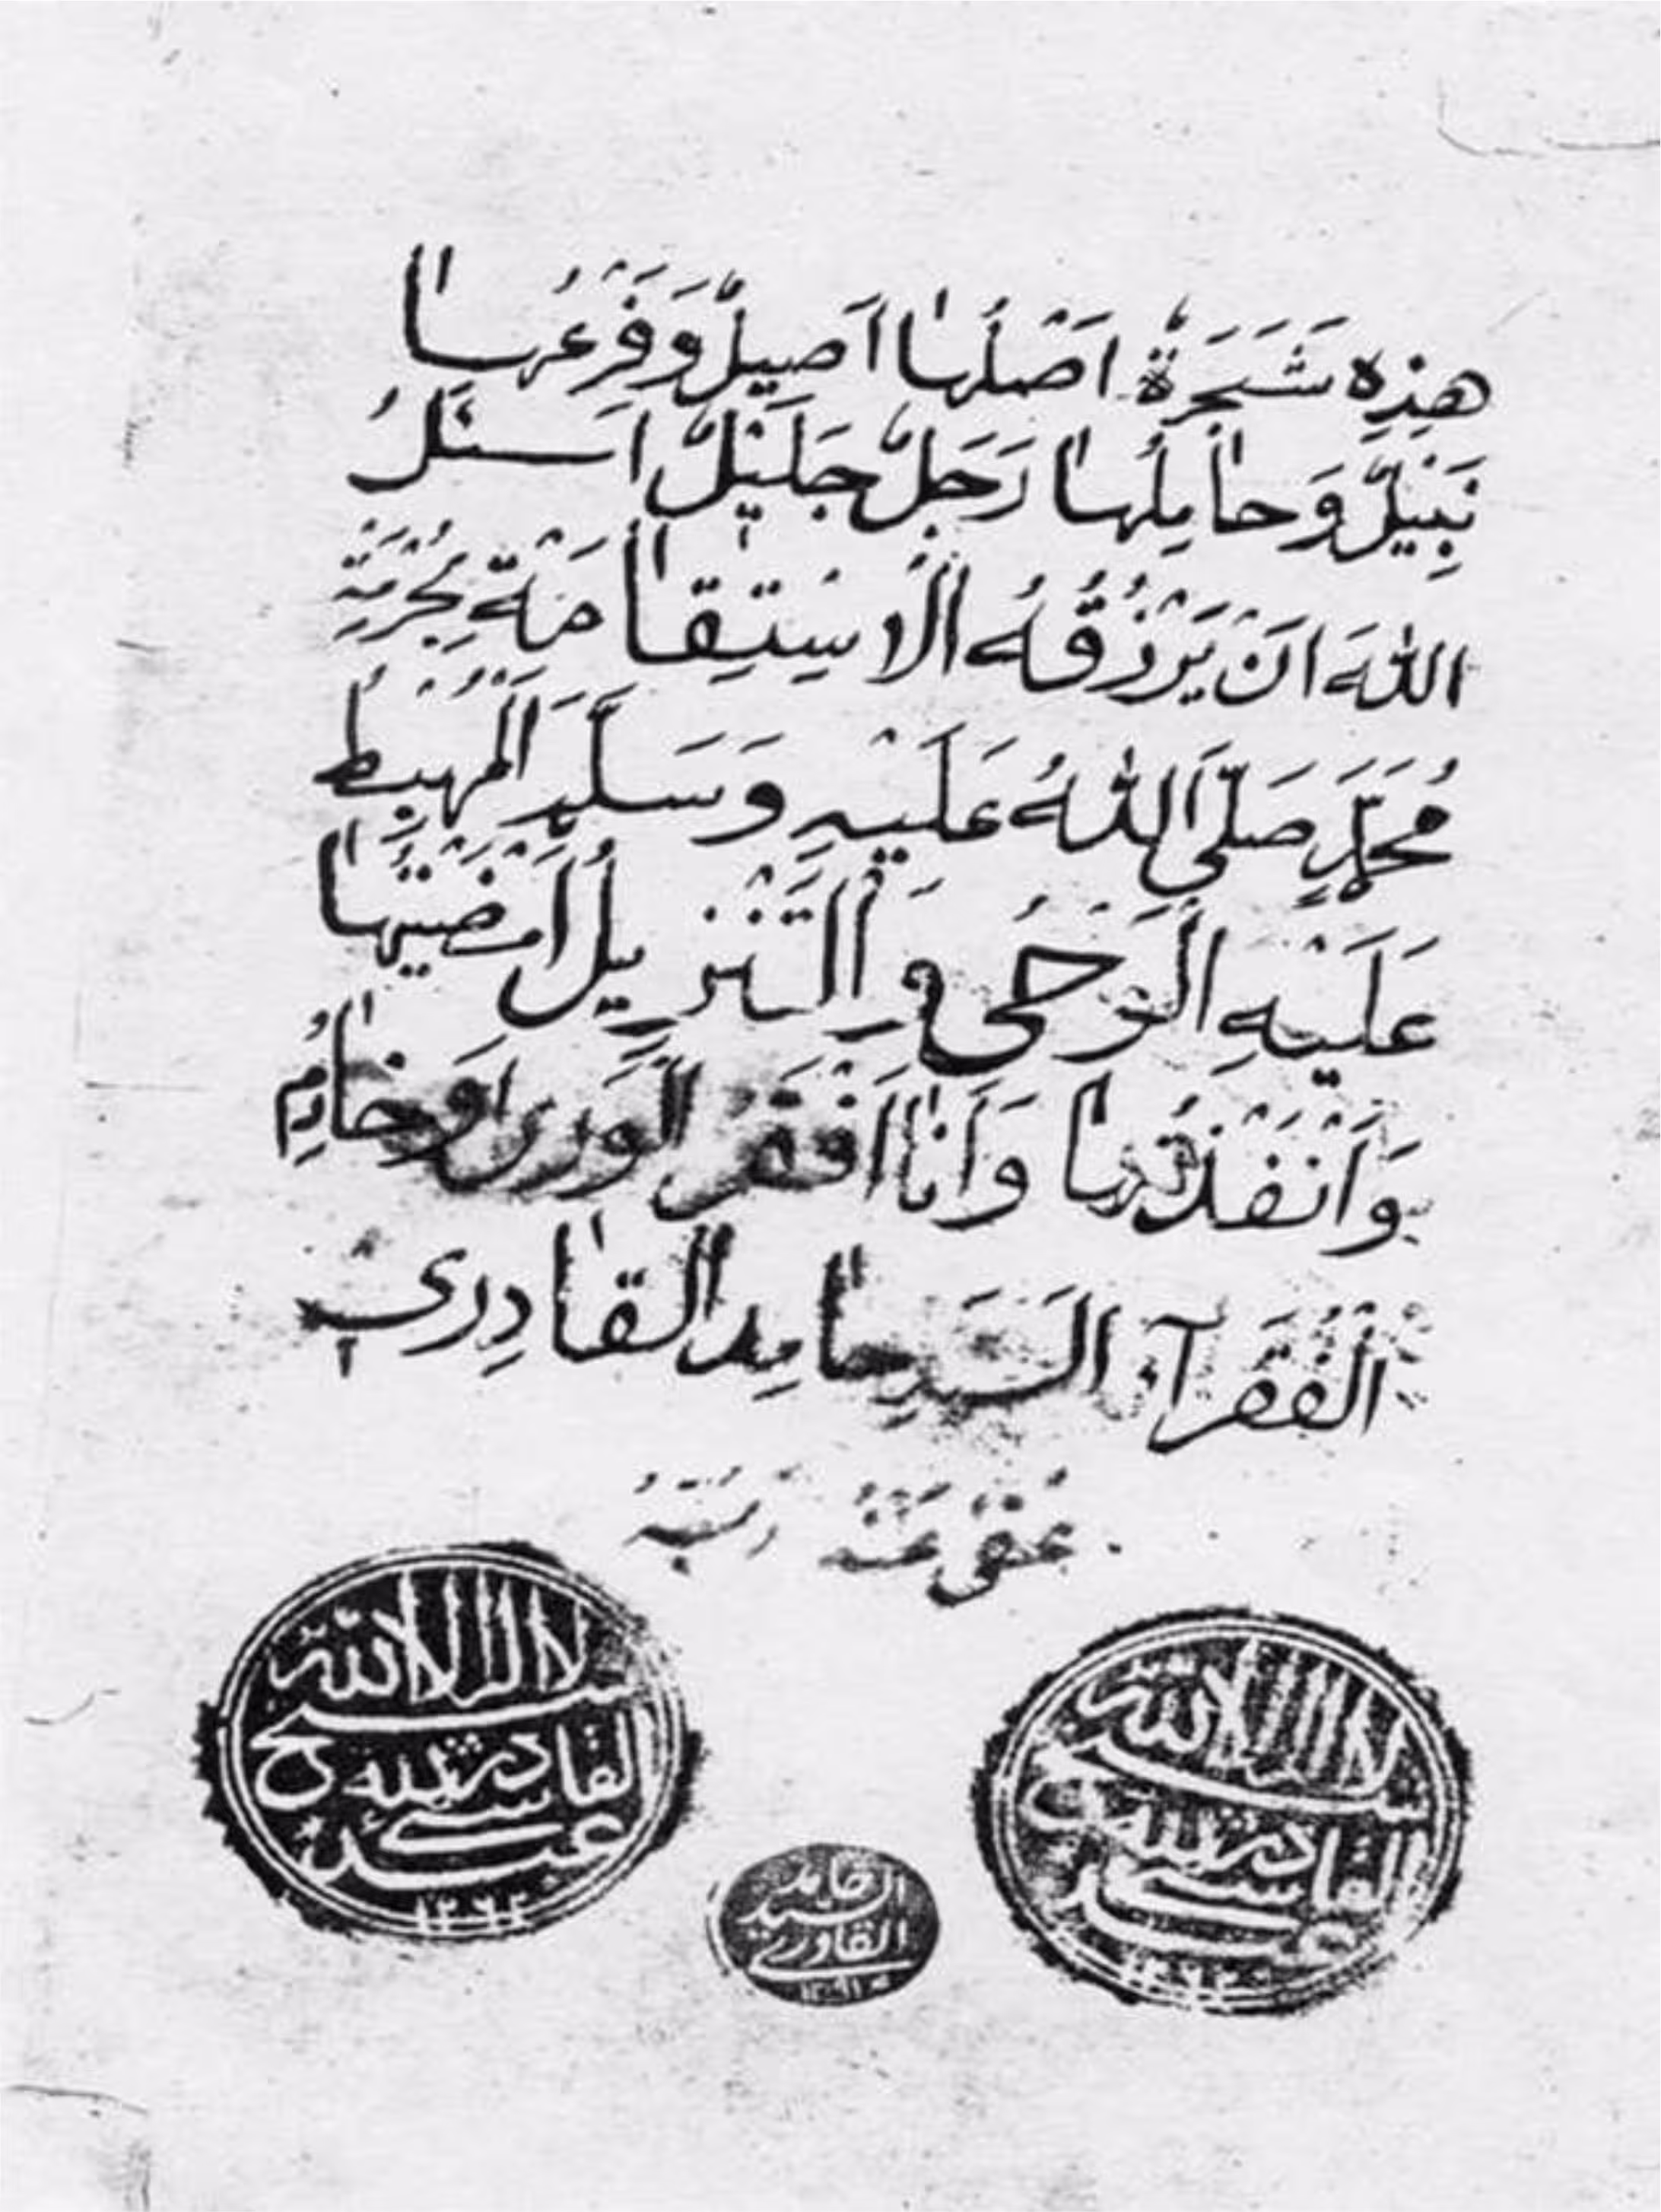 هٰذِهِ شَجَرَةٌ اَصْلُهٰا اَصِيلٌ وَفَرْعُهٰا
نَبِيلٌ وَحٰامِلُهٰا رَجُلٌ جَلِيْلٌ اَسْئَلُ
اللّٰهَ اَنْ يَرْزُقَهُ الْاِسْتِقٰامَةَ بِحُرْمَةِ
مُحَمَّدٍ صَلَّى اللّٰهُ عَلَيْهِ وَسَلَّمَ الْمُهْبَطِ
عَلَيْهِ الْوَحْىُ وَالتَّنْزِيلُ اَمْضَيْتُهٰا
وَاَنْفَذْتُهٰا وَاَنَا اَفْقَرُ الْوَرٰى وَخٰادِمُ
الْفُقَرَآءِ السَّيِّد حٰامِد الْقٰادِرِى
عُفِىَ عَنْهُ
لا اله الا الله
شيخ
القادر
عبد
١٢٦٢
لا اله الا الله
القادر
عبد
حامد
السيد
القادري